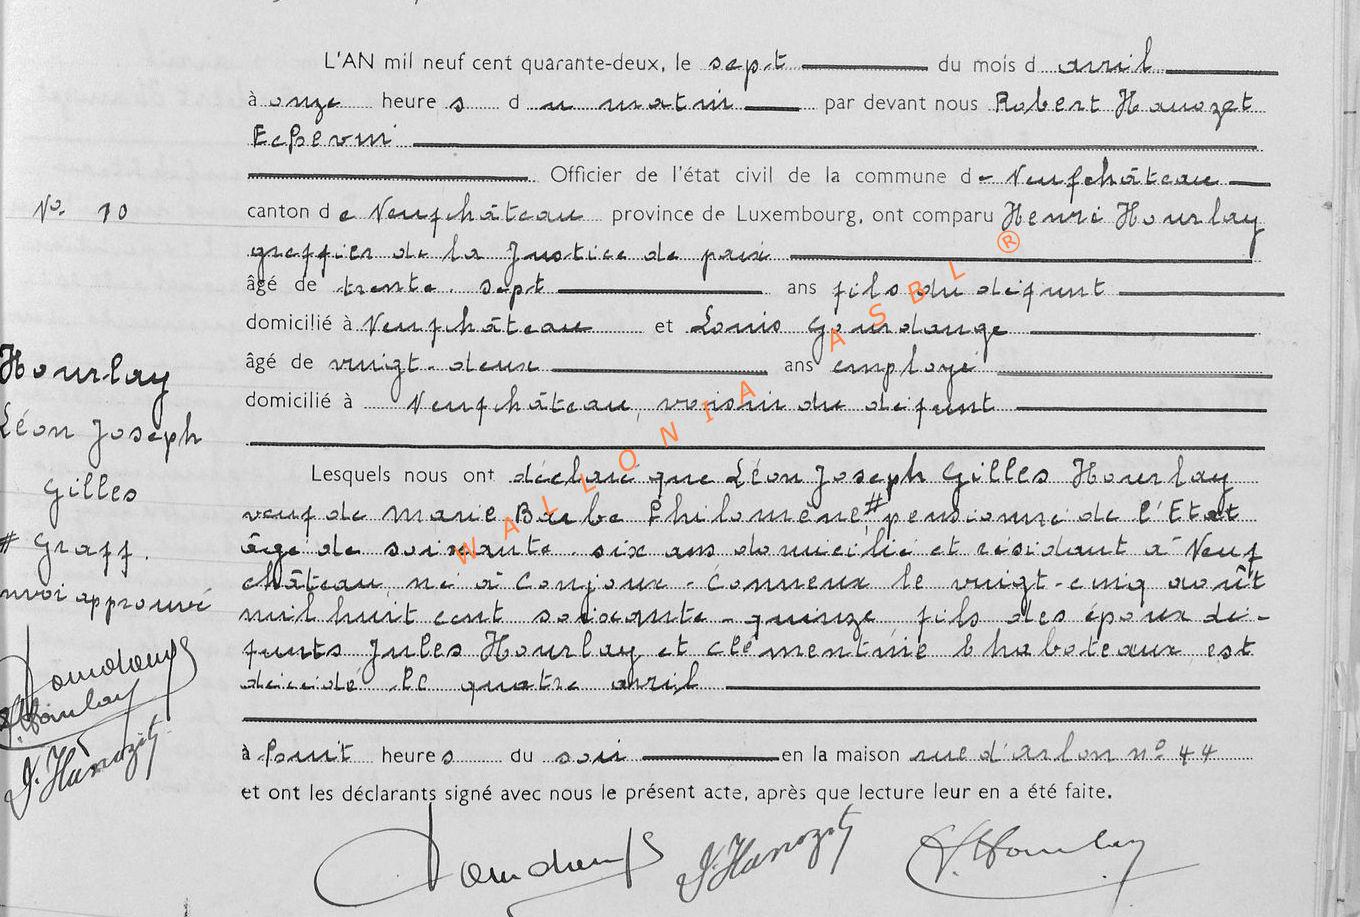 L'AN mil neuf cent quarante-deux, le sept du mois d avril
à onze heure s d u matin par devant nous Robert Hanozet
Echevin
Officier de l'état civil de la commune de Neufchâteau
No. 10
canton de Neufchâteau province de Luxembourg, ont comparu Henri Hourlay
greffier de la Justice de paix
âgé de trente-sept ans fils du défunt
domicilié à Neufchâteau et Louis Gourdange
âgé de vingt-deux ans employé
domicilié à Neufchâteau, voisin du défunt
Hourlay
Léon Joseph
Gilles
# Graff.
renvoi approuvé
Lesquels nous ont déclaré que Léon Joseph Gilles Hourlay
veuf de Marie Barbe Philomène # pensionné de l'Etat
âgé de soixante-six ans domicilié et résidant à Neuf
château, né à Conjoux-Conneux le vingt-cinq août
mil huit cent soixante-quinze fils des époux dé-
funts Jules Hourlay et Clémentine Chaboteaux, est
décédé le quatre avril
à huit heures du soir en la maison rue d'Arlon no 44
et ont les déclarants signé avec nous le présent acte, après que lecture leur en a été faite.
H. Hourlay
WALLONIA ASBL ®